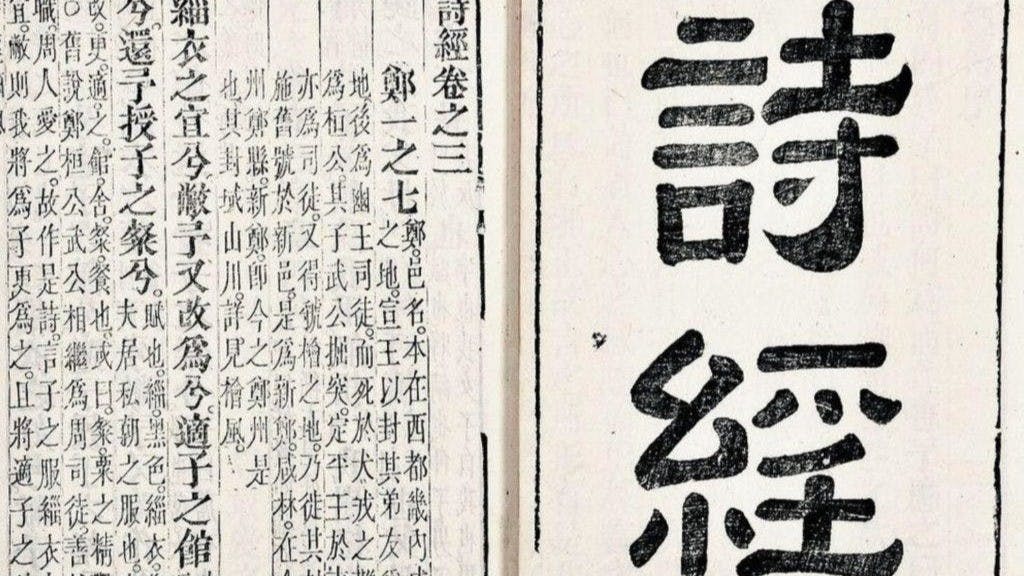 詩經
詩經卷之三
鄭一之七鄭。邑名。本在西都畿內
之地。宣王以封其弟友
地。後爲幽王司徒。而死於犬戎之
爲桓公。其子武公掘突。定平王於
亦爲司徒。又得虢檜之地。乃徙其
施舊號於新邑。是爲新鄭。咸林。在
州鄭縣。新鄭。卽今之鄭州是
也。其封域山川。詳見檜風。
緇衣之宜兮。敝予又改爲兮。適子之館
兮。還予授子之粲兮。賦也。緇。黑色。緇衣。
夫居私朝之服也。
改。更。適。之。館。舍。粲。餐也。或曰。粲。粟之精
○舊說。鄭桓公武公。相繼爲周司徒。善
職。周人愛之。故作是詩。言子之服緇衣
宜。敝則我將爲子更爲之。且將適子之